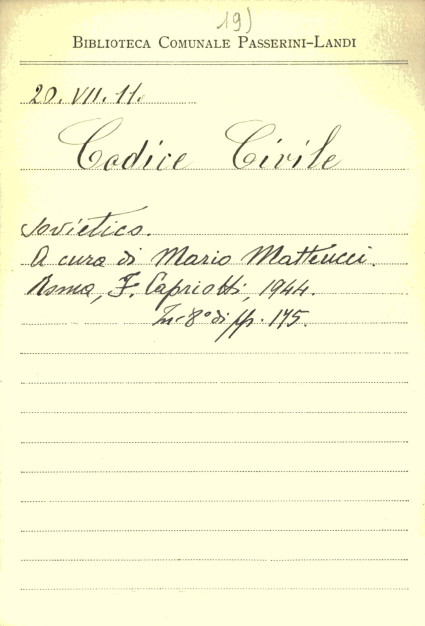 19)
BIBLIOTECA COMUNALE PASSERINI-LANDI
20. VII. 11.
Codice Civile
sovietico.
A cura di Mario Matteucci.
Roma, F. Capriotti, 1944.
In-8° di pp. 175.